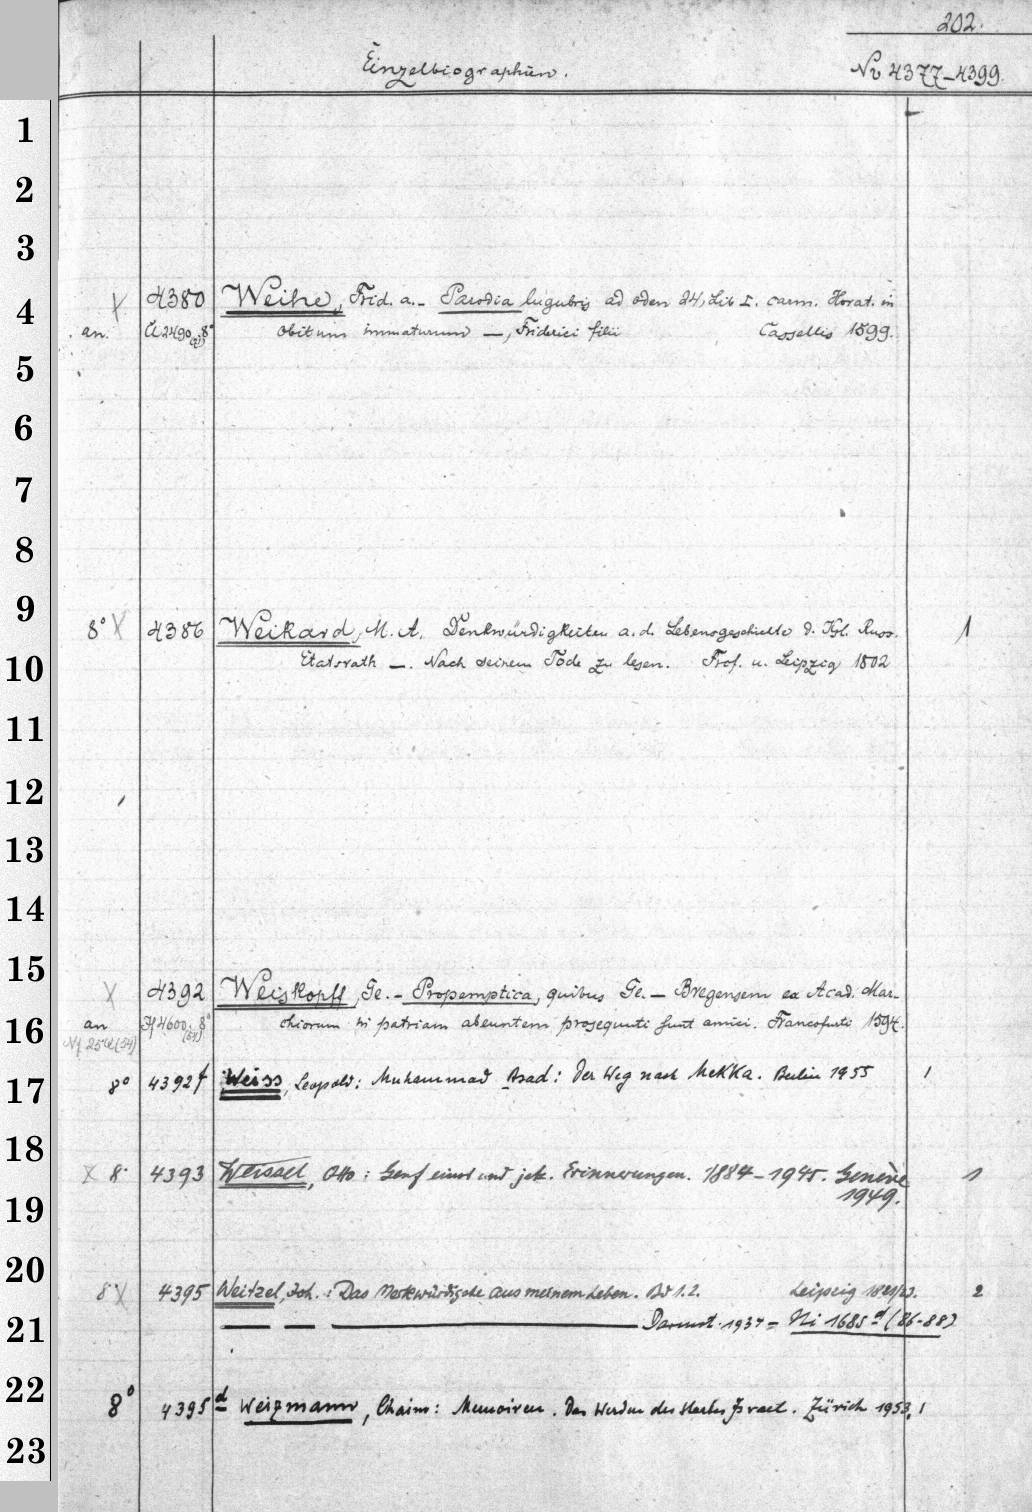 202.
Einzelbiographien.
No 4377-4399.
1
2
3
4
X 4380 Weihe, Frid. a. - Parodia lugubris ad oden 24, Lib I. carm. Horat. in
an. 8° obitum immaturum —, Friderici filii Cassellis 1599.
5
6
7
8
9
8° X 4386 Weikard, M. A. Denkwürdigkeiten a. d. Lebensgeschichte d. Kgl. Russ. 1
10
Etatsrath —. Nach seinem Tode zu lesen. Frcf. u. Leipzig 1802
11
12
13
14
15
X 4392 Weiskopff, Ge. - Propemptica, quibus Ge. — Bregensem ex Acad. Mar-
16
an 4600 8° chiorum in patriam abeuntem prosequuti sunt amici. Francofurti 1594.
17
8° 4392f Weiss, Leopold: Muhammad Asad: Der Weg nach Mekka. Berlin 1955 1
18
X 8° 4393 Weissel, Otto: Genf einst und jetzt. Erinnerungen. 1884-1945. Genève 1
19
1949.
20
8° X 4395 Weitzel, Joh.: Das Merkwürdigste aus meinem Leben. Bd 1.2. Leipzig 1821/23. 2
21
— — — Darmst. 1937 = Ni 1685d (86-88)
22
8° 4395d Weizmann, Chaim: Memoiren. Das Werden des Staates Israel. Zürich 1953. 1
23